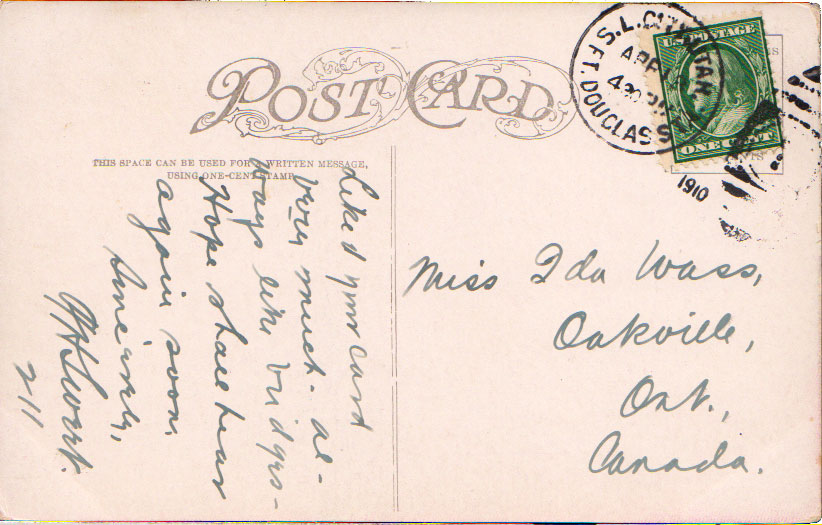 POST CARD
THIS SPACE CAN BE USED FOR A WRITTEN MESSAGE,
USING ONE-CENT STAMP
S.L. CITY, UTAH
APR
4 30 P
FT. DOUGLAS S
1910
U.S. POSTAGE
ONE CENT
Liked your card
very much - al-
ways like bridges -
Hope shall hear
again soon.
Sincerely,
Swart.
211
Miss Ida Wass,
Oakville,
Ont.,
Canada.